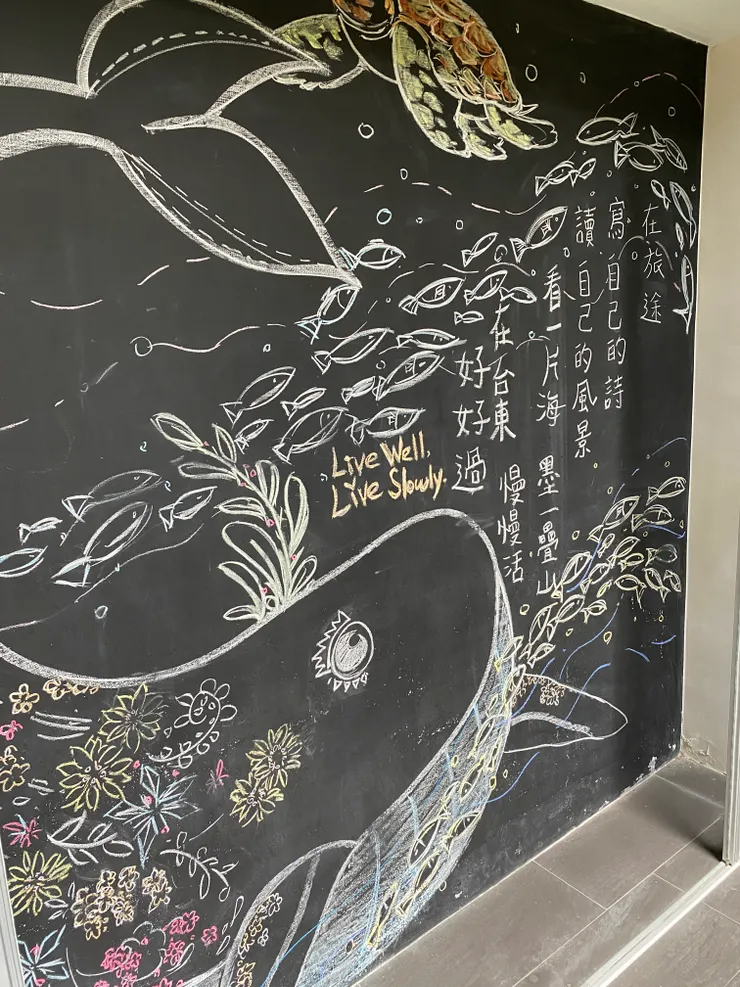 在旅途
寫自己的詩
讀自己的風景
看一片海 墨一疊山
在台東 慢慢活
好好過
Live Well.
Live Slowly.